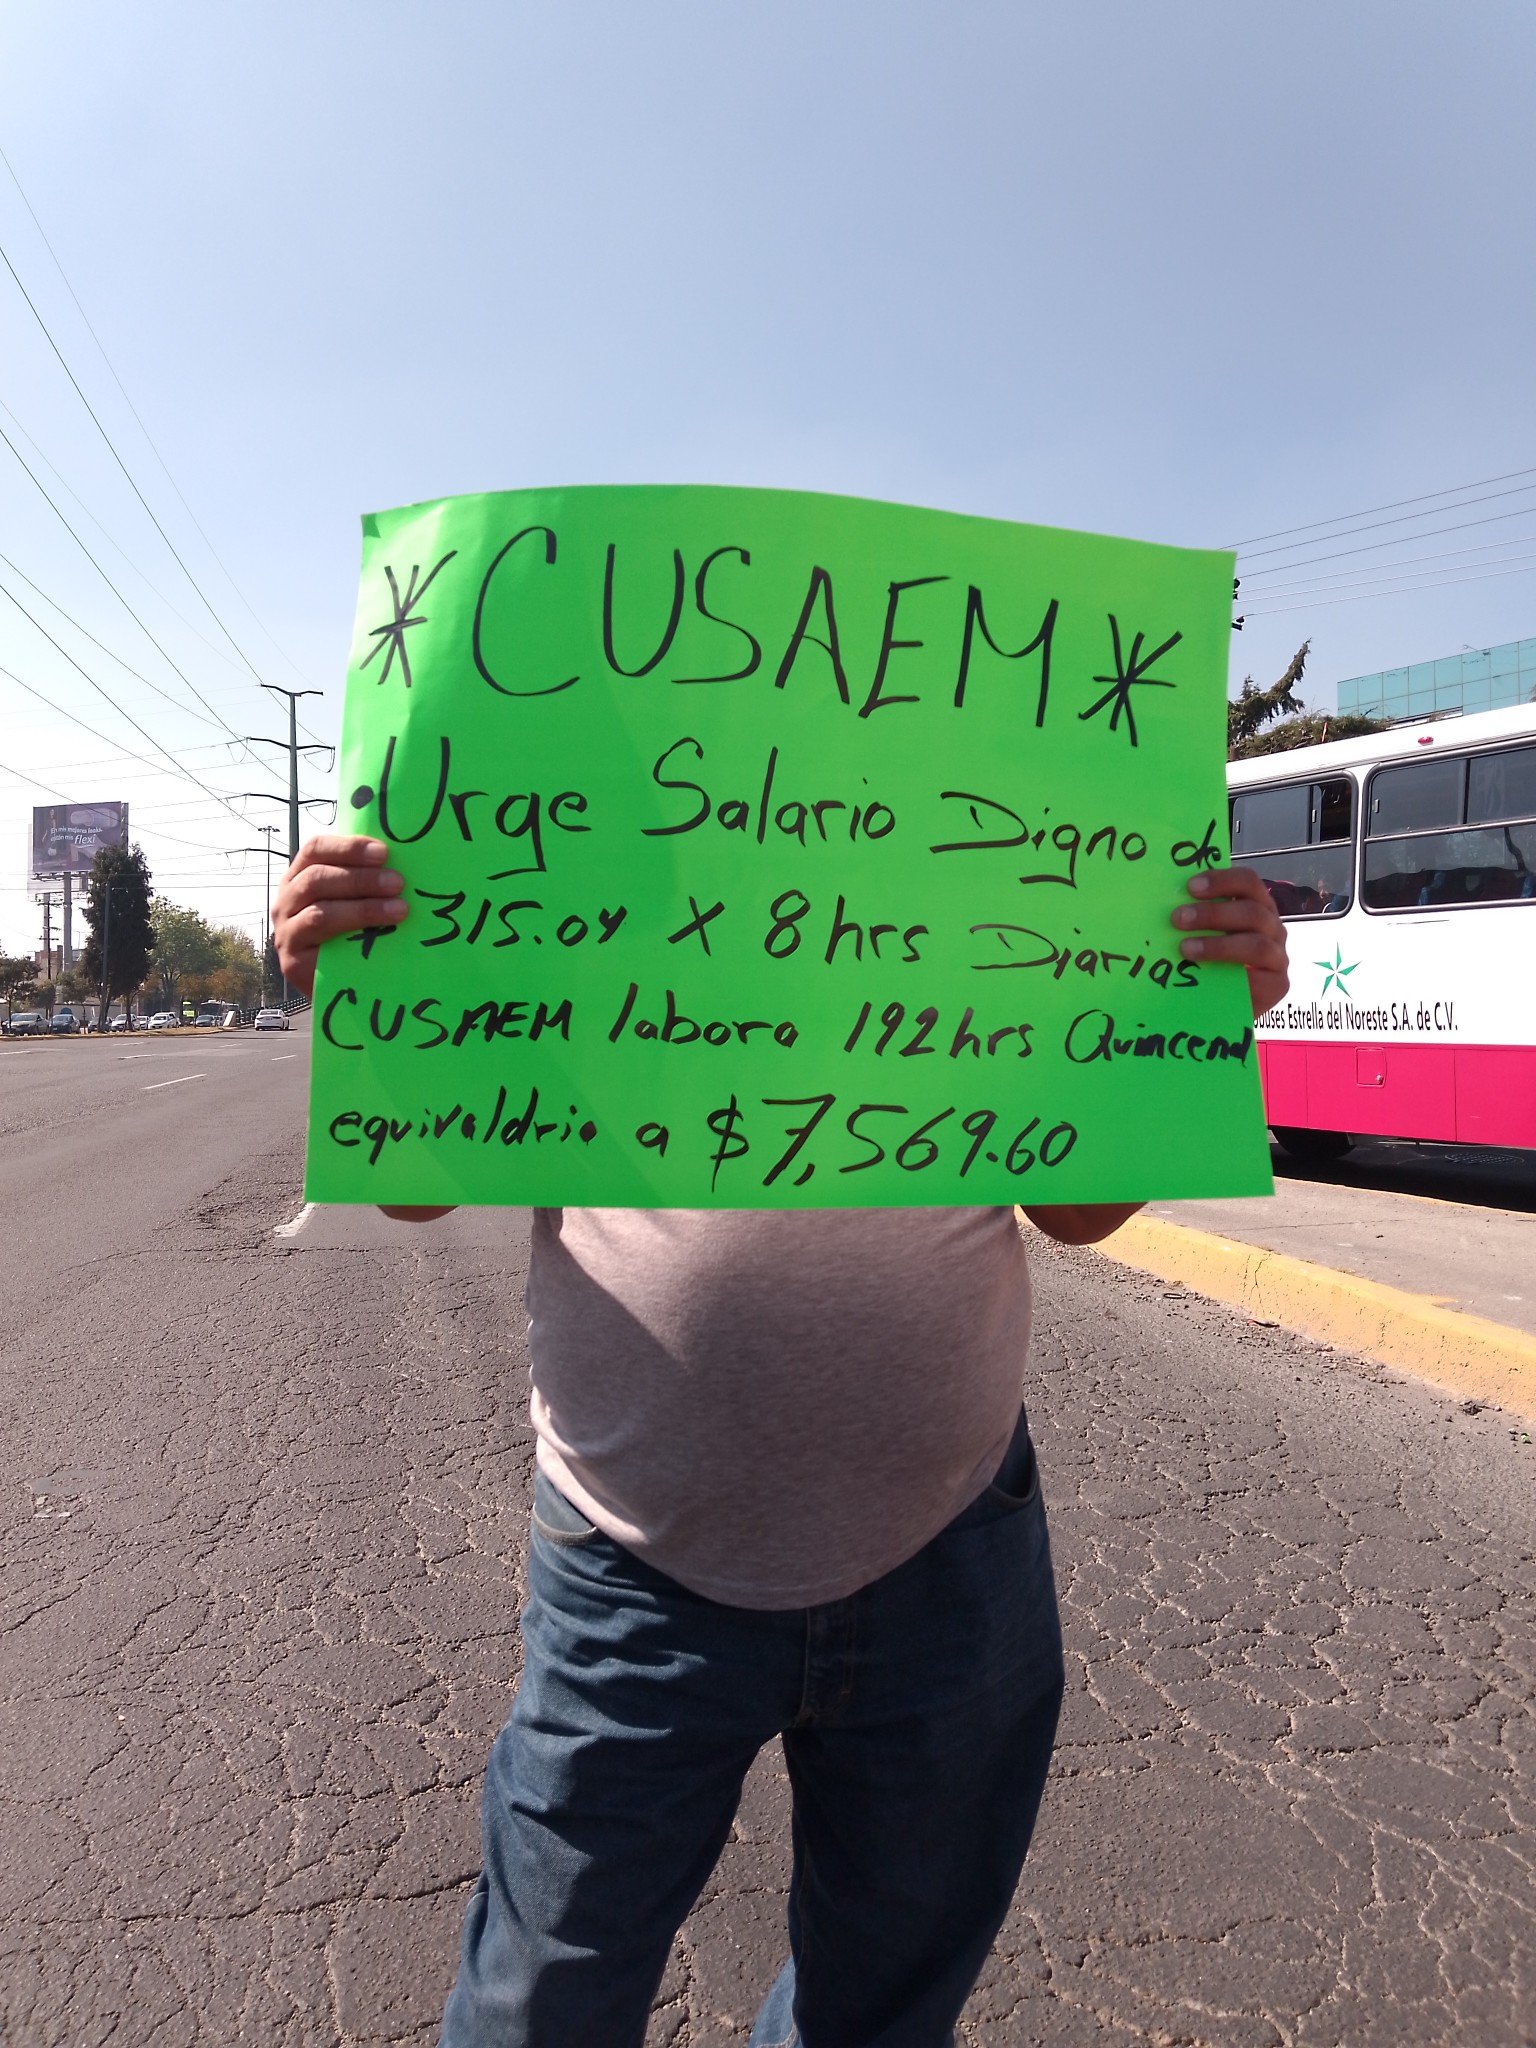 *CUSAEM*
•Urge Salario Digno de
$315.04 X 8hrs Diarias
CUSAEM labora 192hrs Quincenal
equivaldria a $7,569.60
En mis mejores looks,
están mis flexi
Estrella del Noreste S.A. de C.V.